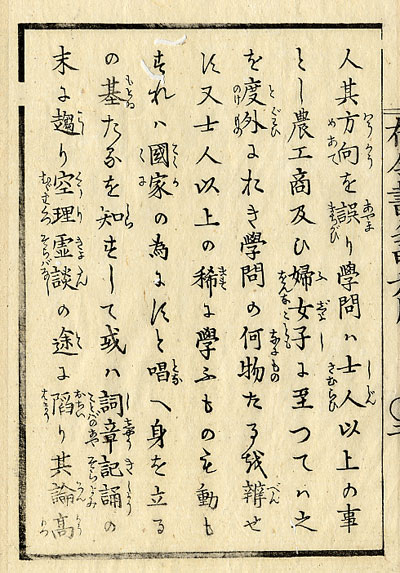 人其方向を誤り學問ハ士人以上の事
とし農工商及ひ婦女子に至つてハ之
を度外におき學問の何物たるを辨せ
す又士人以上の稀に學ふものも動も
すれハ國家の為にすと唱へ身を立る
の基たるを知すして或ハ詞章記誦の
末に趨り空理虚談の途に陥り其論高